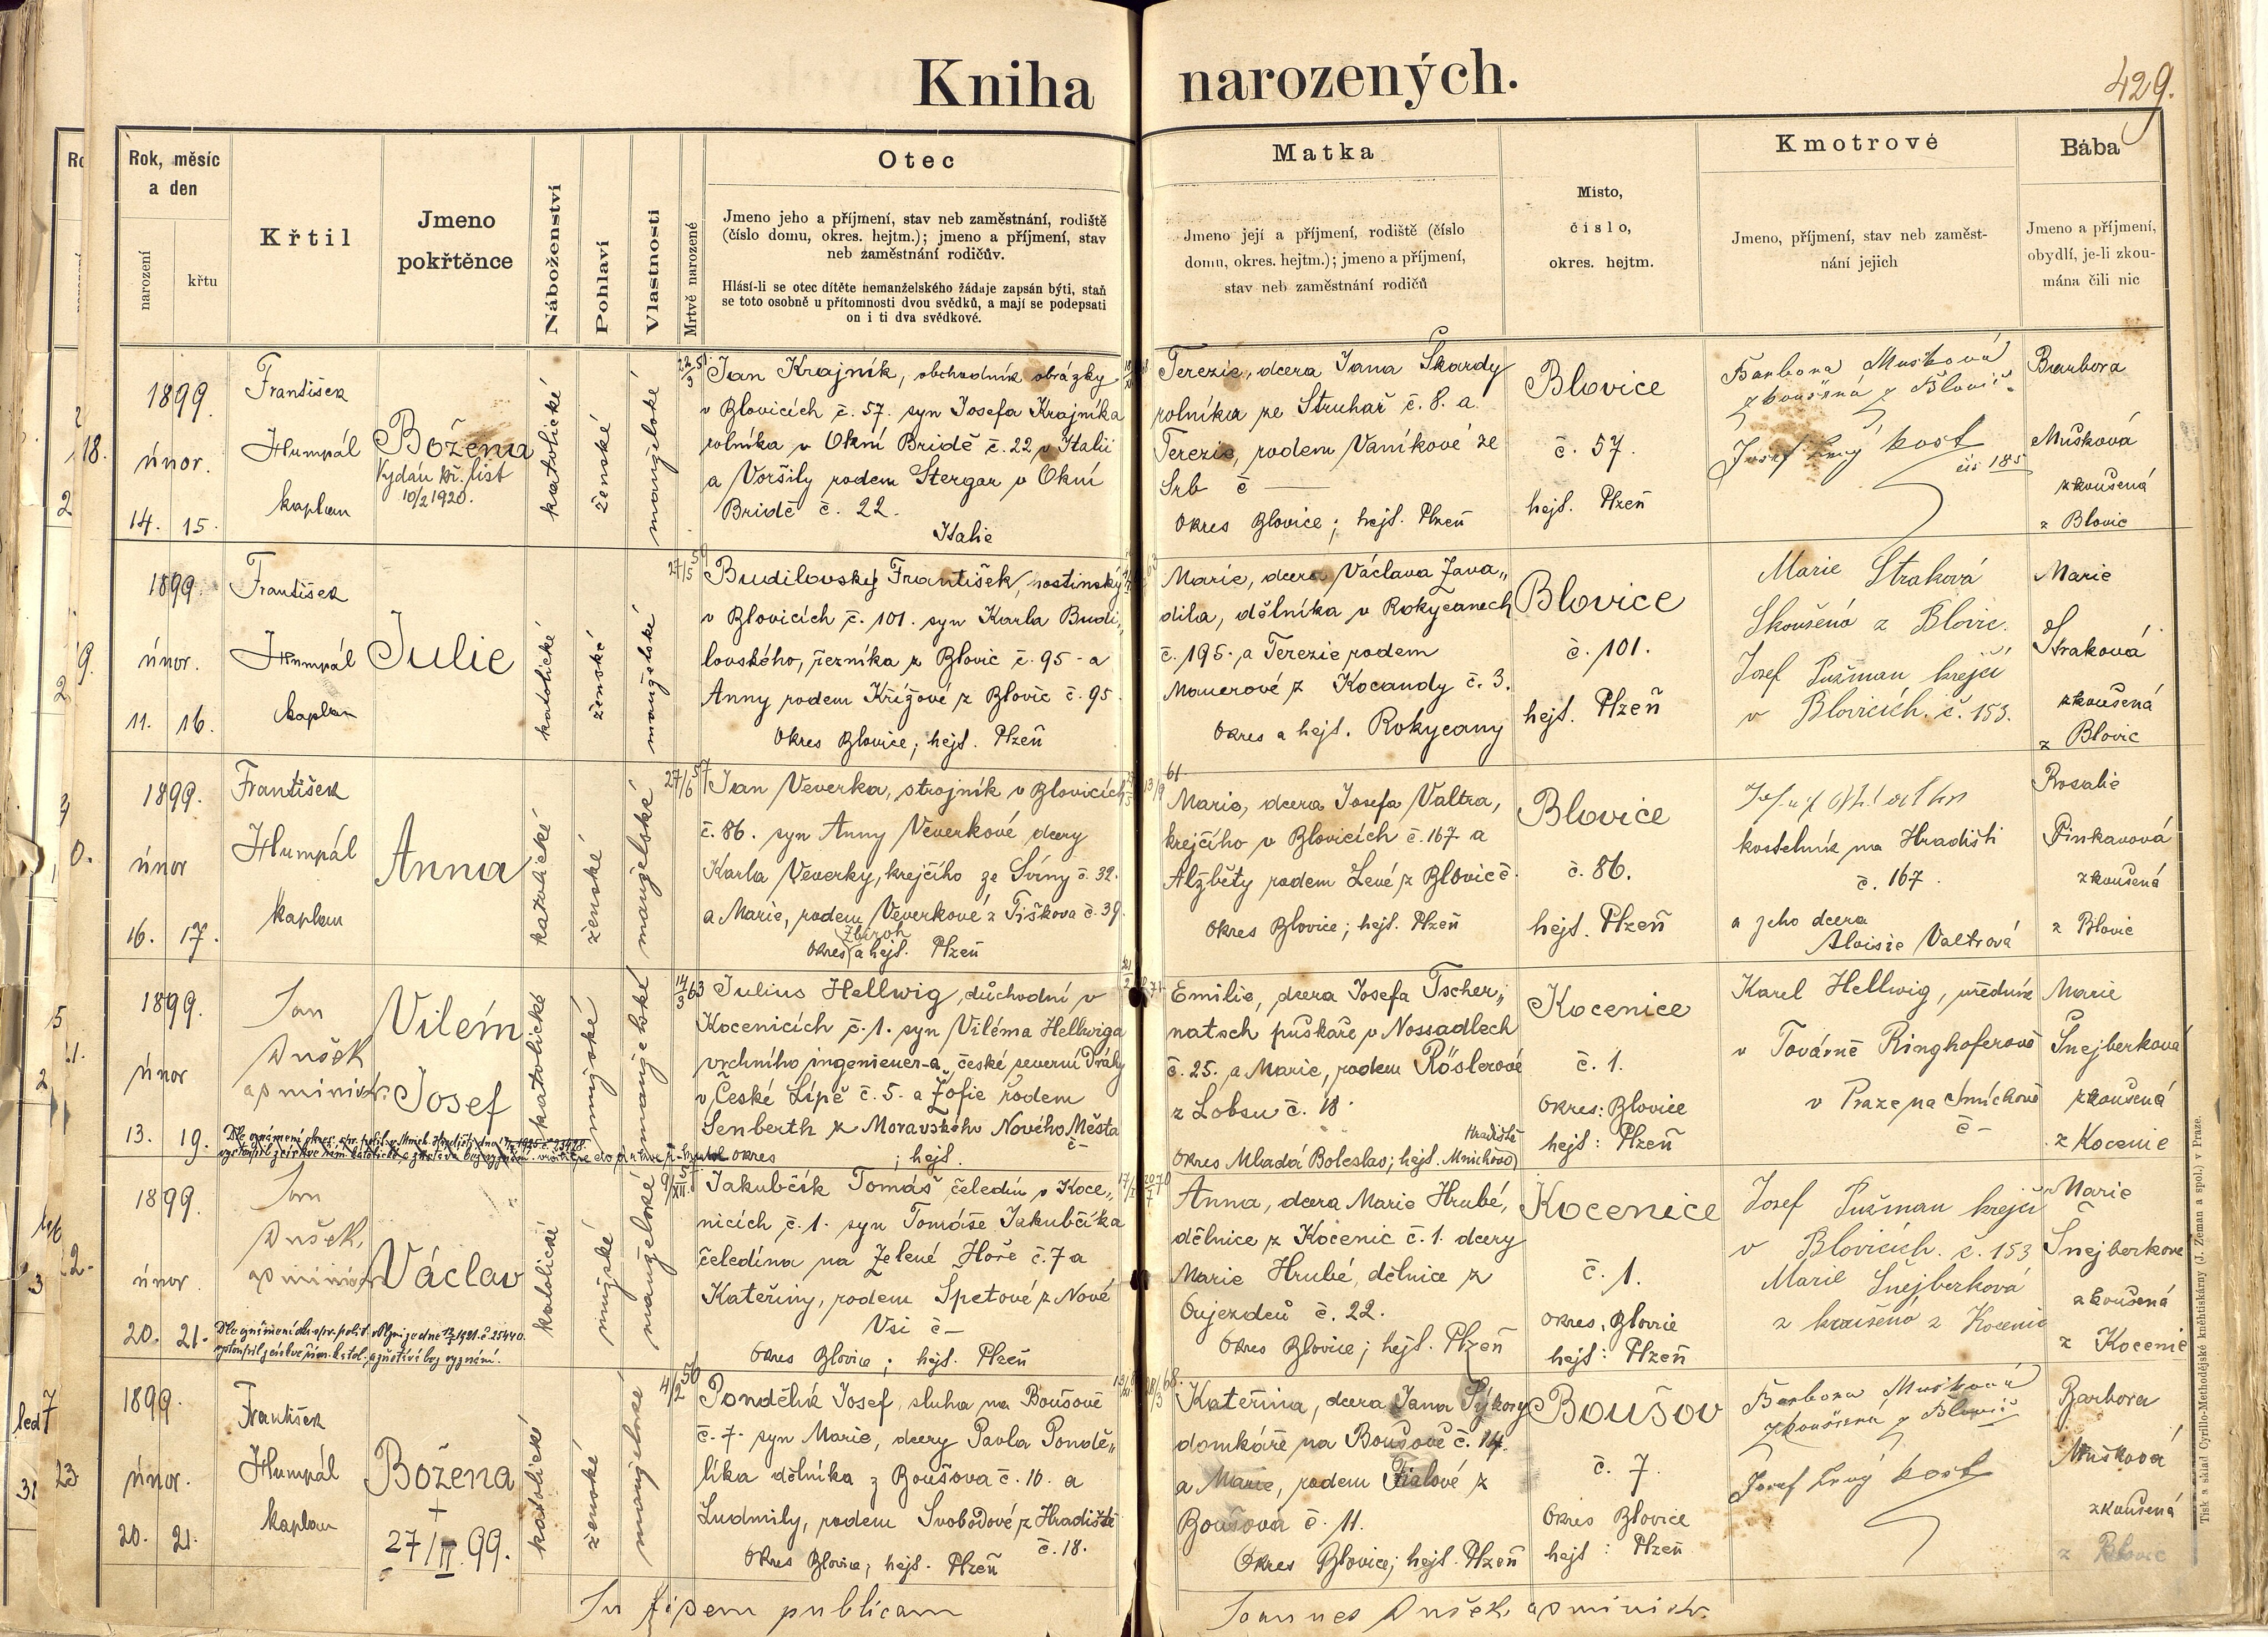 Kniha narozených.
429.
Rok, měsíc
a den
narození
křtu
Křtil
Jmeno
pokřtěnce
Náboženství
Pohlaví
Vlastnosti
Mrtvě narozené
Otec
Jmeno jeho a příjmení, stav neb zaměstnání, rodiště
(číslo domu, okres. hejtm.); jmeno a příjmení, stav
neb zaměstnání rodičův.
Hlásí-li se otec dítěte nemanželského žádaje zapsán býti, staň
se toto osobně u přítomnosti dvou svědků, a mají se podepsati
on i ti dva svědkové.
Matka
Jmeno její a příjmení, rodiště (číslo
domu, okres. hejtm.); jmeno a příjmení,
stav neb zaměstnání rodičů
Místo,
číslo,
okres. hejtm.
Kmotrové
Jmeno, příjmení, stav neb zaměst-
nání jejich
Bába
Jmeno a příjmení,
obydlí, je-li zkou-
mána čili nic
18.
1899.
únor.
14. 15.
František
Humpál
kaplan
Božena
Vydán kř. list
10/2 1920.
katolické
ženské
manželské
Jan Krajník, obchodník obrázky
v Blovicích č. 57. syn Josefa Krajníka
rolníka v Okní Bridě č. 22 v Italii
a Voršily rodem Stergar v Okní
Bridě č. 22.
Italie
Terezie, dcera Jana Škardy
rolníka ze Struhař č. 8. a
Terezie, rodem Vaníkové ze
Srb č —
Okres Blovice; hejt. Plzeň
Blovice
č. 57.
hejt. Plzeň
Barbora Mušková
zkoušená z Blovic.
Josef Levý kost
čís 185
Barbora
Mušková
zkoušená
z Blovic
9.
1899.
únor.
11. 16.
František
Humpál
kaplan
Julie
katolické
ženské
manželské
Budilovský František, hostinský
v Blovicích č. 101. syn Karla Budi„
lovského, řezníka z Blovic č. 95 - a
Anny rodem Křížové z Blovic č. 95.
Okres Blovice; hejt. Plzeň
Marie, dcera Václava Zava„
dila, dělníka v Rokycanech
č. 195. a Terezie rodem
Mauerové z Kocandy č. 3.
Okres a hejt. Rokycany
Blovice
č. 101.
hejt. Plzeň
Marie Straková
Skoušená z Blovic.
Josef Pužman krejčí
v Blovicích. č. 153.
Marie
Straková
zkoušená
z Blovic
0.
1899.
únor
16. 17.
František
Humpál
kaplan
Anna
katolické
ženské
manželské
Jan Veverka, strojník v Blovicích
č. 86. syn Anny Veverkové, dcery
Karla Veverky, krejčího ze Sviny č. 32.
a Marie, rodem Veverkové z Tiškova č. 39.
Zbiroh
Okres a hejt. Plzeň
Marie, dcera Josefa Valtra,
krejčího v Blovicích č. 167 a
Alžběty rodem Levé z Blovic č.
Okres Blovice; hejt. Plzeň
Blovice
č. 86.
hejt. Plzeň
kostelník na Hradišti
č. 167.
a jeho dcera
Aloisie Valtrová
Rosalie
Pinkavová
zkoušená
z Blovic
1899.
únor
13. 19.
Jan
Dušek
administr.
Vilém
Josef
katolické
mužské
manželské
Julius Hellwig, důchodní v
Kocenicích č. 1. syn Viléma Hellwiga
vrchního ingenieur-a, české severní Dráhy
v České Lípě č. 5. a Žofie rodem
Senberth z Moravského Nového Města
č –
okres ; hejt.
Emilie, dcera Josefa Tscher„
natsch puškaře v Nossadlech
č. 25. a Marie, rodem Röslerové
z Lobsu č. 18.
Hradiště
Okres Mladá Boleslav; hejt. Mnichovo
Kocenice
č. 1.
Okres: Blovice
hejt: Plzeň
Karel Hellwig, úředník
v Továrně Ringhoferově
v Praze na Smíchově
č –
Marie
Šnejberková
zkoušená
z Kocenic
2.
1899.
únor.
20. 21.
Jan
Dušek,
administr.
Václav
katolické
mužské
manželské
Jakubčík Tomáš, čeledín v Koce„
nicích č. 1. syn Tomáše Jakubčíka
čeledína na Zelené Hoře č. 7 a
Kateřiny, rodem Špetové z Nové
Vsi č –
Okres Blovice; hejt. Plzeň
Anna, dcera Marie Hrubé,
dělnice z Kocenic č. 1. dcery
Marie Hrubé, dělnice z
Oujezdců č. 22.
Okres Blovice; hejt. Plzeň
Kocenice
č. 1.
Okres. Blovice
hejt: Plzeň
Josef Pužman krejčí
v Blovicích. č. 153
Marie Šnejberková
zkoušená z Kocenic
Marie
Šnejberková
zkoušená
z Kocenic
23
1899.
únor.
20. 21.
František
Humpál
kaplan
Božena
+
27/II. 99.
katolické
ženské
manželské
Pondělík Josef, sluha na Boušově
č. 7. syn Marie, dcery Pavla Pondě„
líka dělníka z Boušova č. 10. a
Ludmily, rodem Svobodové z Hradiště
č. 18.
Okres Blovice; hejt. Plzeň
Kateřina, dcera Jana Sýkory
domkáře na Boušově č. 14.
a Marie, rodem Fialové z
Boušova č. 11.
Okres Blovice; hejt. Plzeň
Boušov
č. 7.
Okres Blovice
hejt: Plzeň
Barbora Mušková
zkoušená z Blovic
Josef Levý kost
Barbora
Mušková
zkoušená
z Blovic
In fidem publicam
Joannes Dušek, administr.
Tisk a sklad Cyrillo-Methodějské kněhtiskárny (J. Zeman a spol.) v Praze.